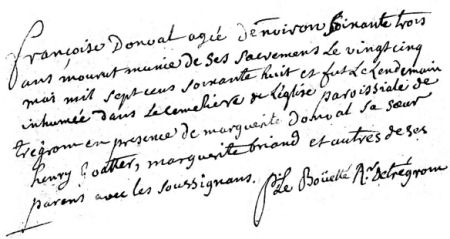 françoise Donval agée d'environ soixante trois
ans mourut munie de ses sacremens Le vingt cinq
mai mil sept cens soixante huit et fut Le Lendemain
inhumée dans Le cemetiere de L'église paroissiale de
tregrom en presence de marguerite Donval sa sœur
henry marguerite briand et autres de ses
parens avec les soussignans. Le Boüetté Rr De trégrom